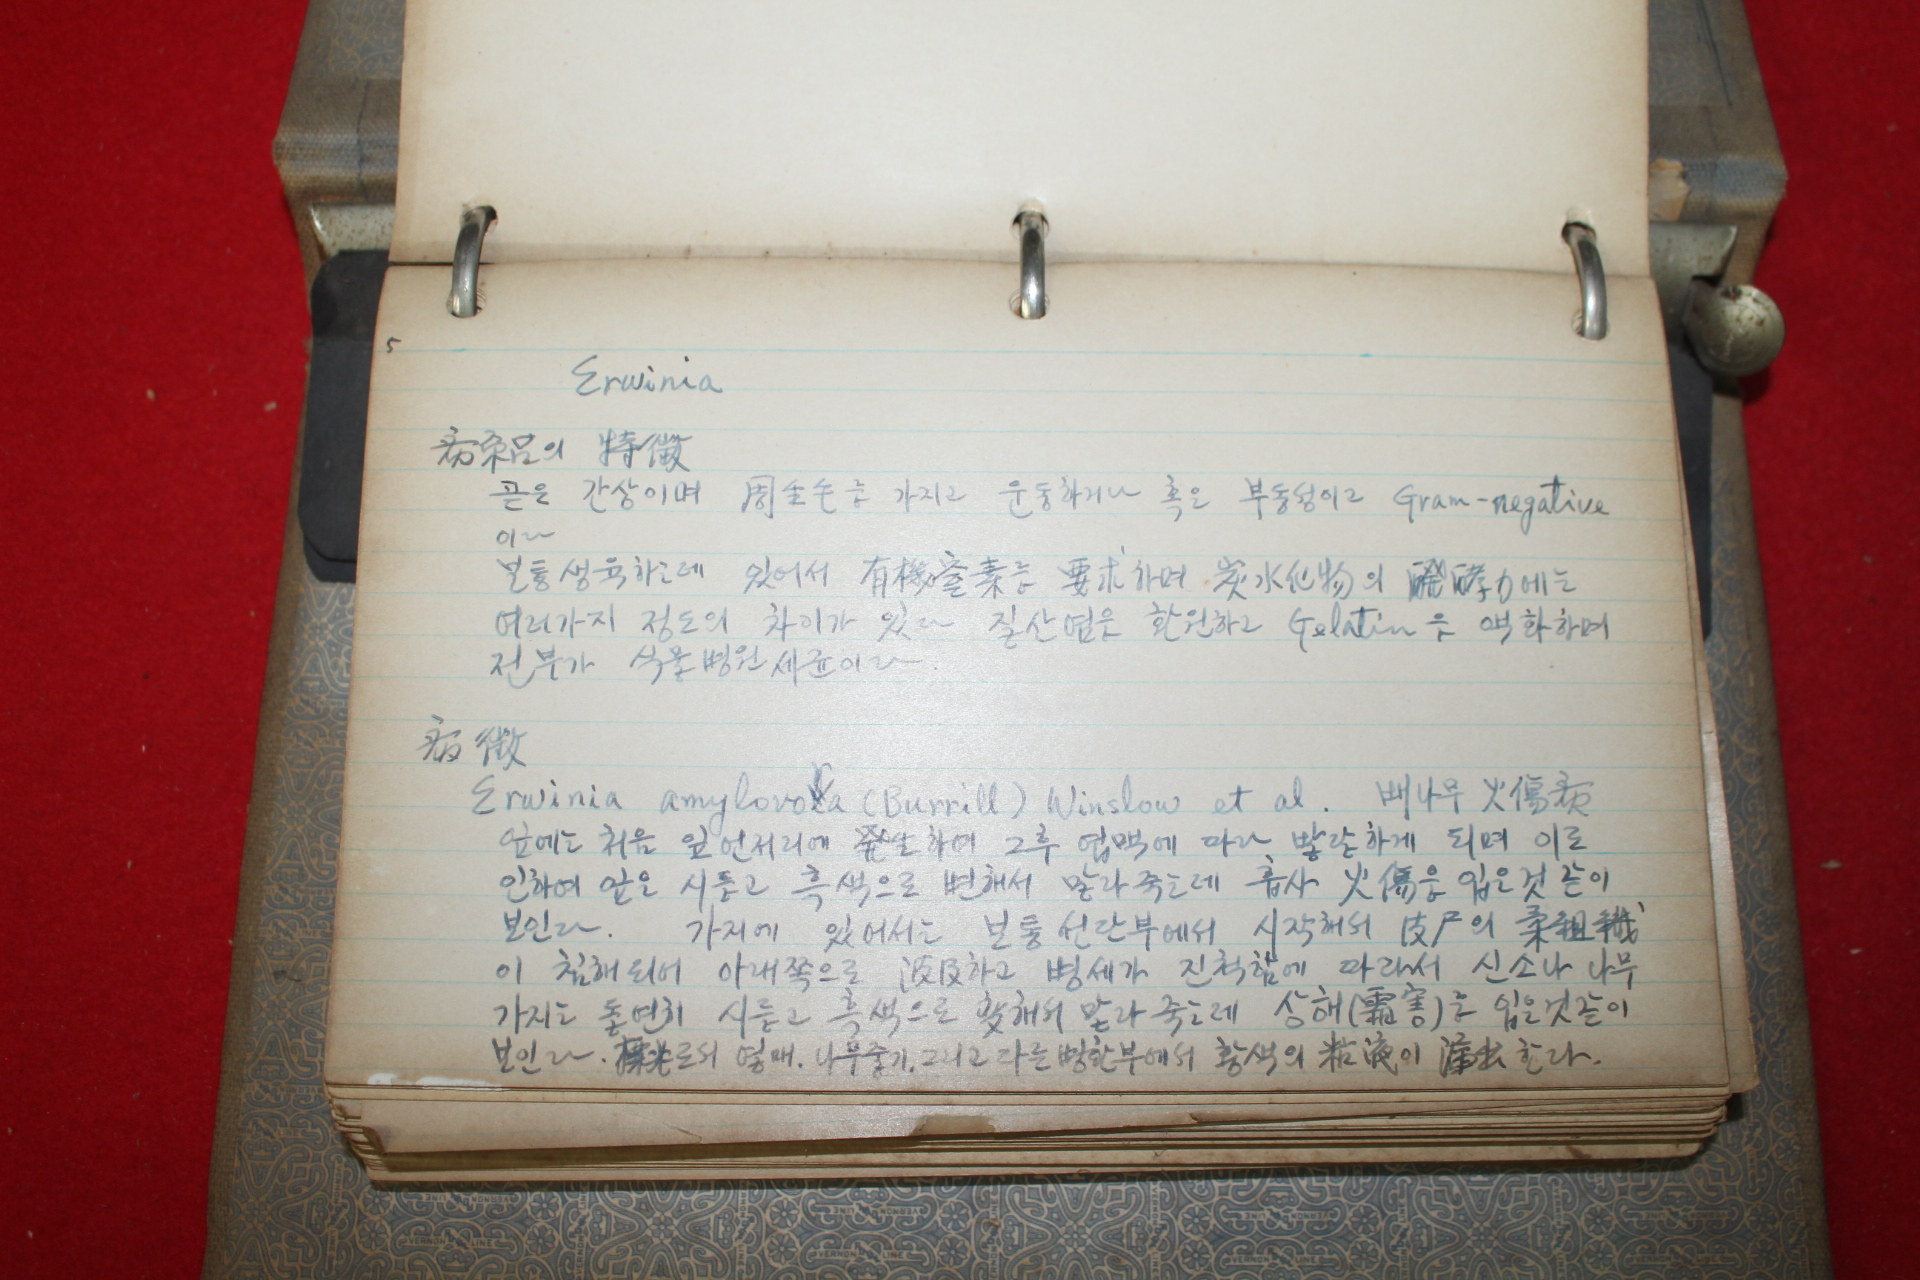 5
Erwinia
病原균의 特徵
균은 간상이며 周生毛를 가지고 운동하거나 혹은 부동성이고 Gram-negative
이다
보통 생육하는데 있어서 有機窒素를 要求하며 炭水化物의 醱酵力에는
여러가지 정도의 차이가 있다 질산염은 환원하고 Gelatin을 액화하며
전부가 식물병원세균이다.
病徵
Erwinia amylovora (Burrill) Winslow et al. 배나무 火傷病
잎에는 처음 잎언저리에 発生하여 그후 엽맥에 따라 빨갛하게 되며 이로
인하여 잎은 시들고 흑색으로 변해서 말라죽는데 흡사 火傷을 입은것 같이
보인다. 가지에 있어서는 보통 선단부에서 시작해서 皮尸의 柔組織
이 침해되어 아래쪽으로 波及하고 병세가 진척함에 따라서 신소나 나무
가지는 돌연히 시들고 흑색으로 変해서 말라 죽는데 상해(霜害)를 입은것같이
보인다. 로서 열매. 나무줄기. 그리고 다른 병환부에서 황색의 粘液이 한다.
VERNON LINE